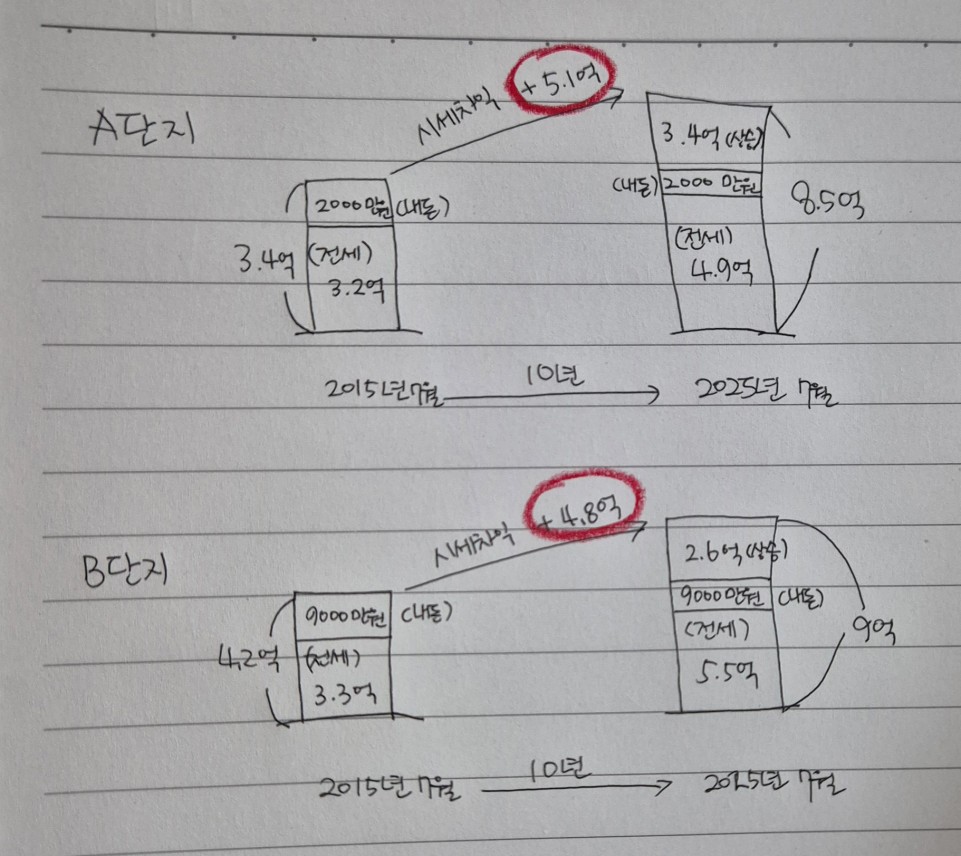 A단지
시세차익 +5.1억
3.4억
2000만원 (내돈)
(전세)
3.2억
3.4억(상승)
(내돈) 2000만원
(전세)
4.9억
8.5억
2015년 7월 10년 2025년 7월
B단지
시세차익 +4.8억
4.2억
9000만원 (내돈)
(전세)
3.3억
2.6억(상승)
9000만원 (내돈)
(전세)
5.5억
9억
2015년 7월 10년 2025년 7월